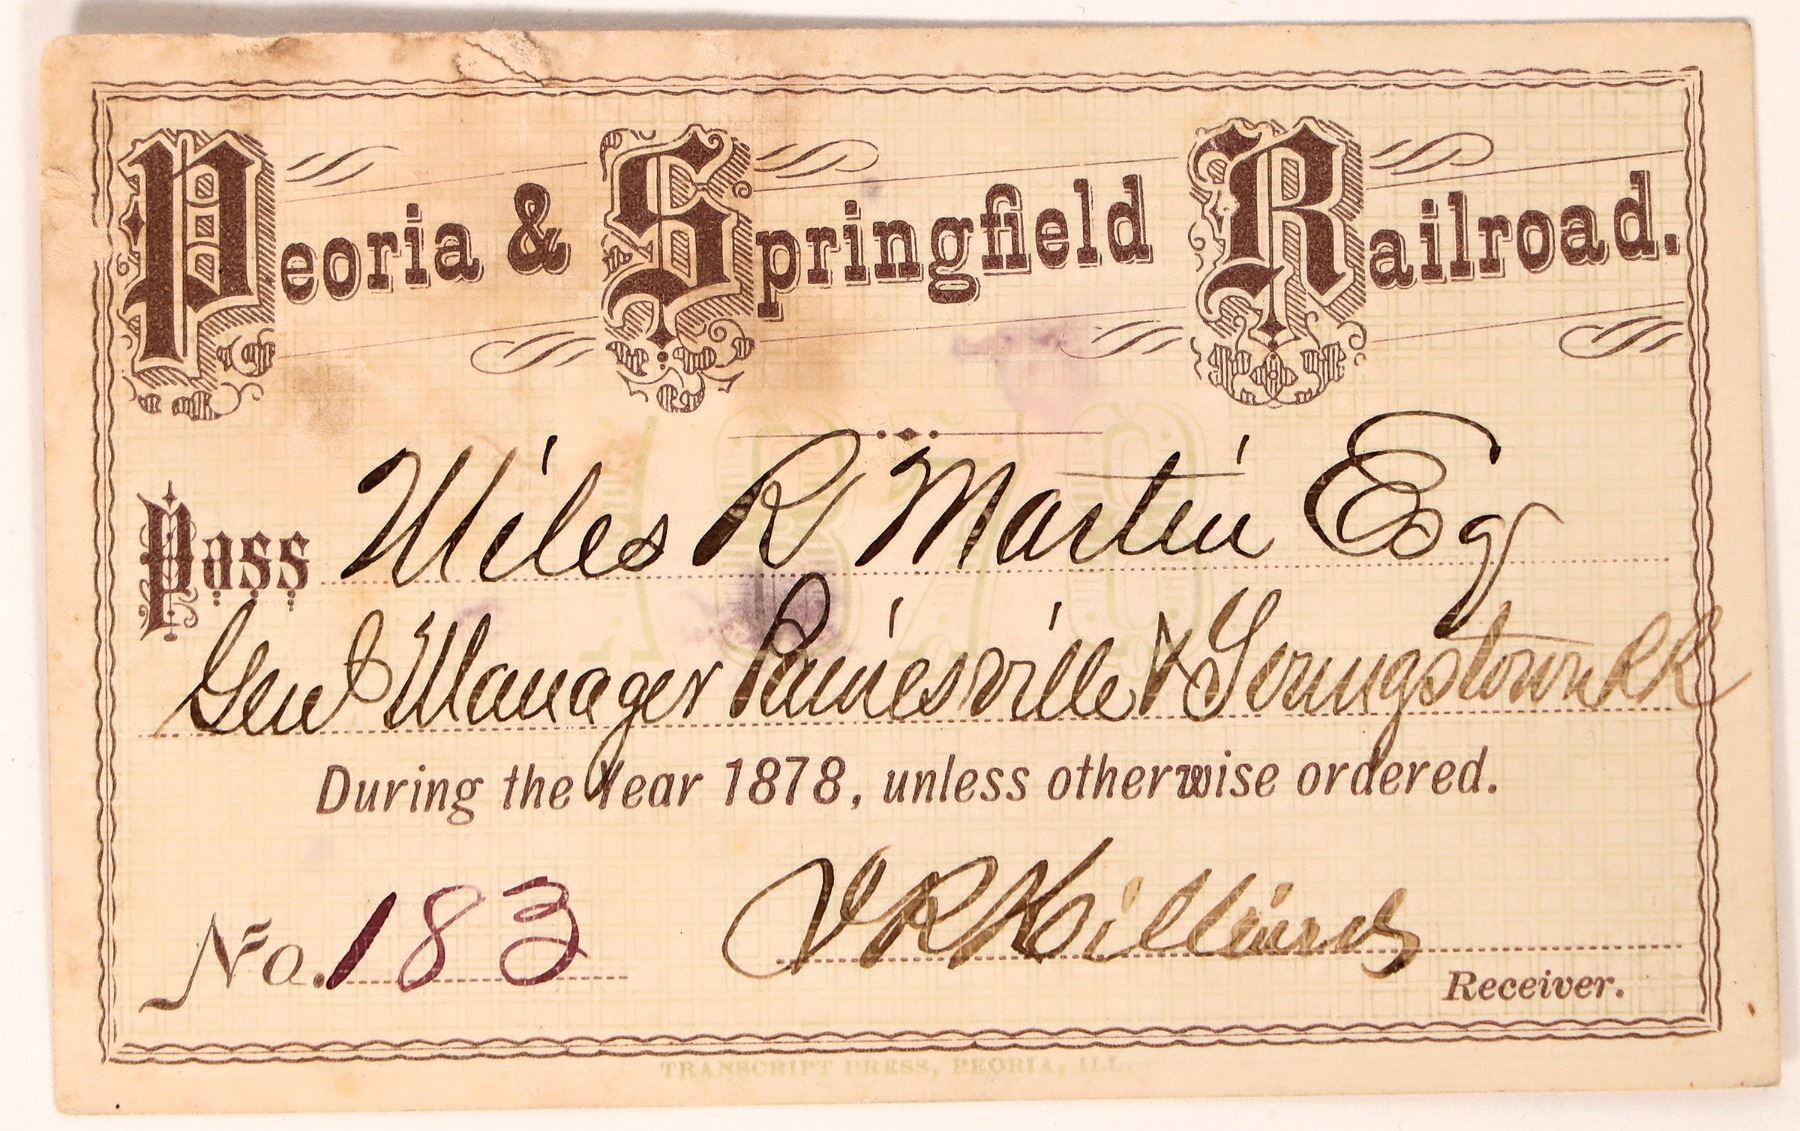 Peoria & Springfield Railroad.
1878
Pass Miles R Martin Esq
Genl Manager Painesville & Youngstown RR
During the Year 1878, unless otherwise ordered.
No. 183
Receiver.
TRANSCRIPT PRESS, PEORIA, ILL.